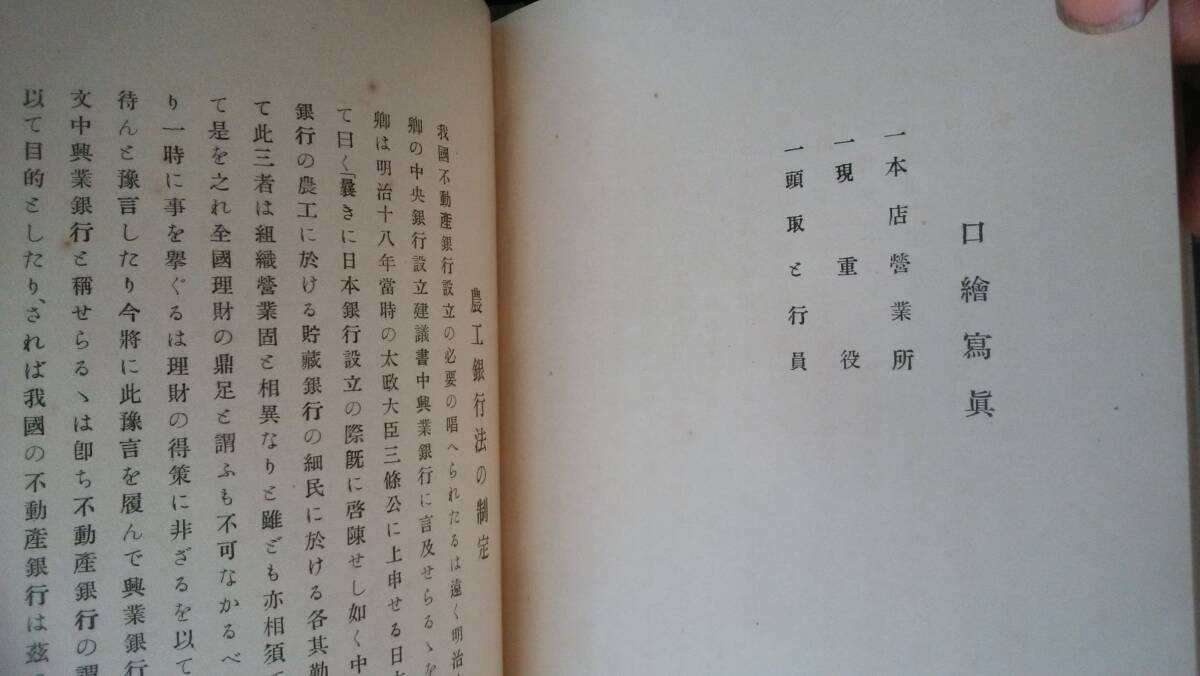 口繪寫眞
一本店營業所
一現重役
一頭取と行員
農工銀行法の制定
我國不動產銀行設立の必要の唱へられたるは遠く明治
卿の中央銀行設立建議書中興業銀行に言及せらるゝを
卿は明治十八年當時の太政大臣三條公に上申せる日本
て曰く「曩きに日本銀行設立の際旣に啓陳せし如く中
銀行の農工に於ける貯藏銀行の細民に於ける各其勤
て此三者は組織營業固と相異なりと雖ども亦相須
て是を之れ全國理財の鼎足と謂ふも不可なかるべ
り一時に事を擧ぐるは理財の得策に非ざるを以て
待んと豫言したり今將に此豫言を履んで興業銀行
文中興業銀行と稱せらるゝは卽ち不動產銀行の謂
以て目的としたり、されば我國の不動產銀行は茲